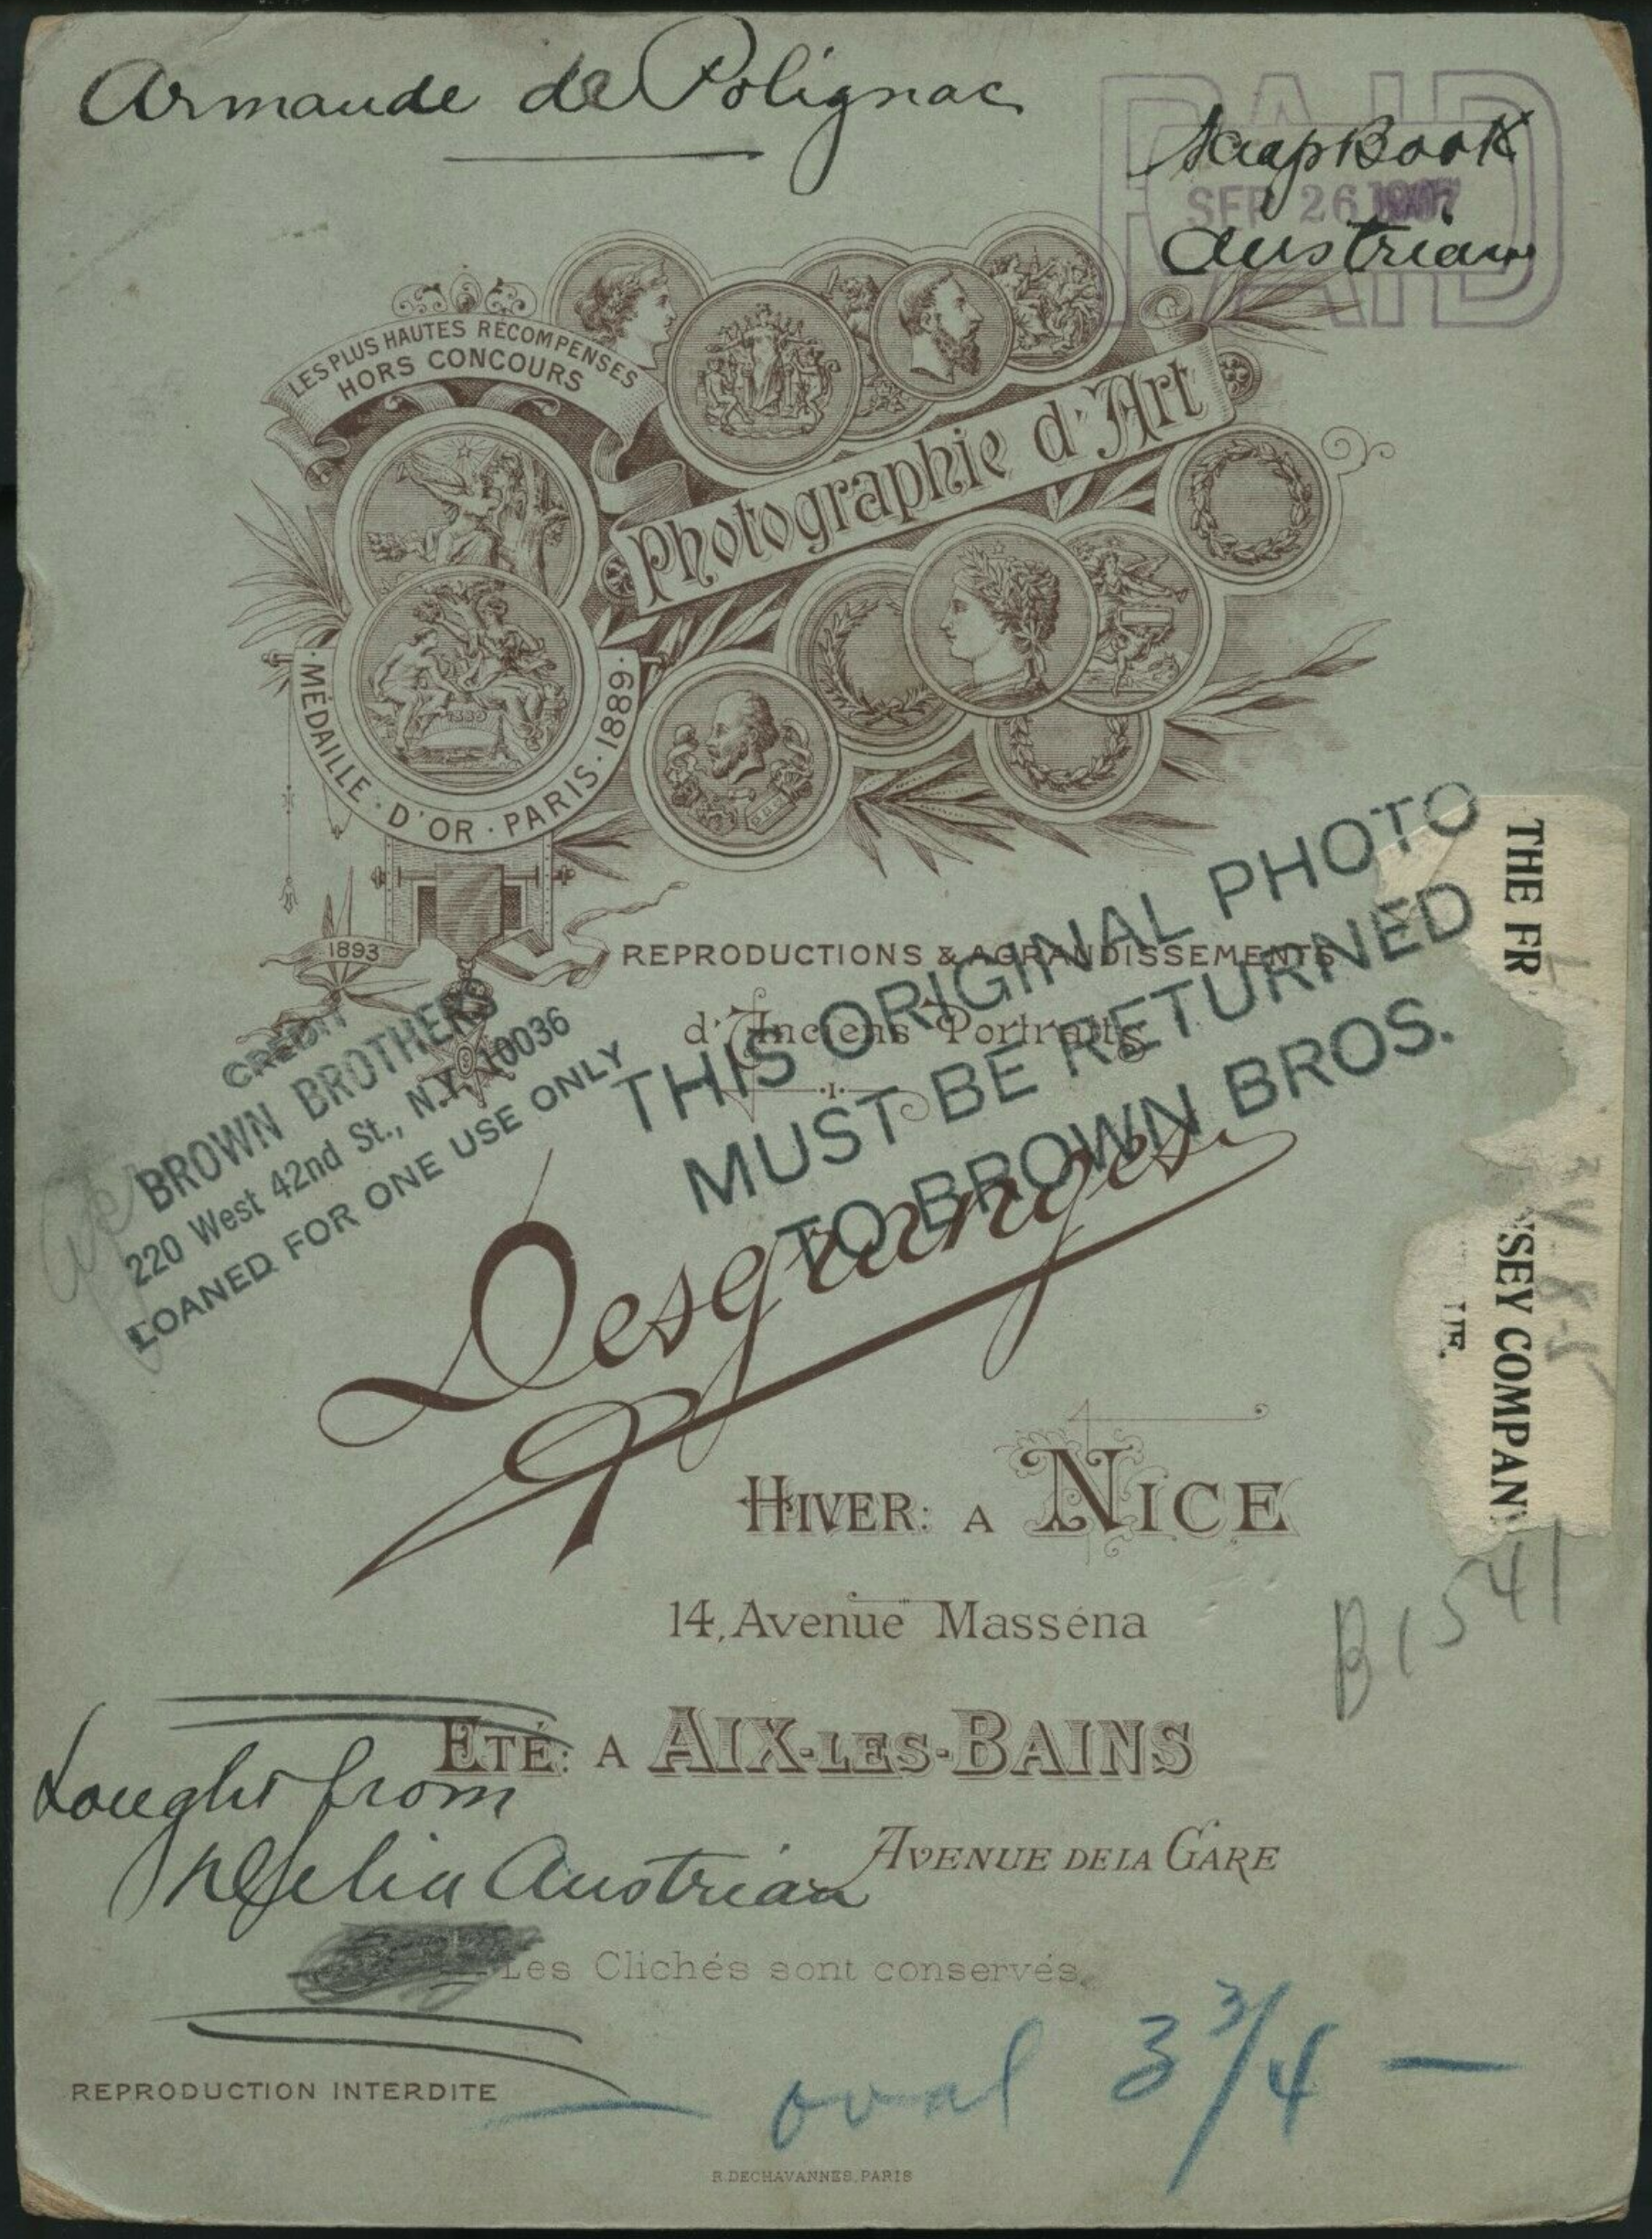 Armande de Polignac
ScrapBook
PAID
SEP 26 1907
Austrian
LES PLUS HAUTES RÉCOMPENSES
HORS CONCOURS
Photographie d'Art
1889
·MÉDAILLE·D'OR·PARIS·1889·
1893
REPRODUCTIONS & AGRANDISSEMENTS
d'Anciens Portraits
CREDIT
BROWN BROTHERS
220 West 42nd St., N.Y. 10036
LOANED FOR ONE USE ONLY
THIS ORIGINAL PHOTO
MUST BE RETURNED
TO BROWN BROS.
THE FR
SEY COMPANY
Desgranges
HIVER: A NICE
14, Avenue Masséna
B1541
ETÉ: A AIX-LES-BAINS
AVENUE DE LA GARE
Bought from
Delia Austrian
Les Clichés sont conservés
REPRODUCTION INTERDITE
oval 3 3/4 —
R. DECHAVANNES, PARIS